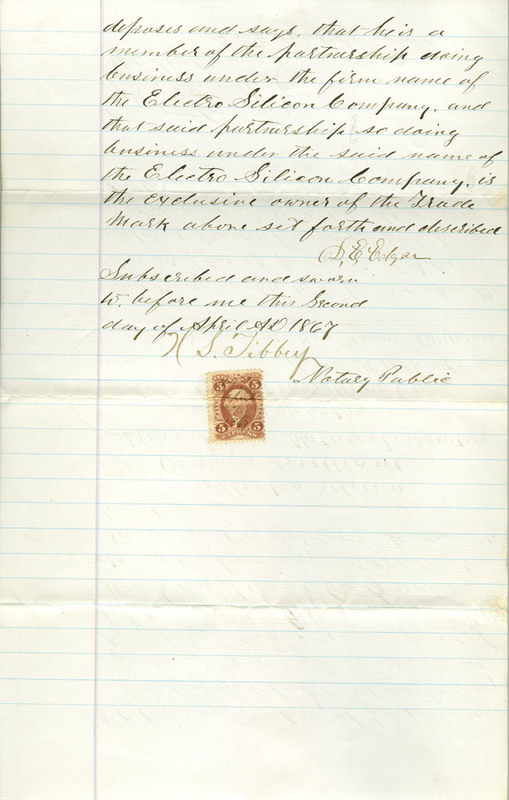 deposes and says, that he is a
member of the partnership doing
business under the firm name of
the Electro Silicon Company, and
that said partnership so doing
business under the said name of
the Electro Silicon Company, is
the exclusive owner of the Trade
Mark above set forth and described
S, E Edgar
Subscribed and sworn
to, before me this Second
day of April AD 1867
H S. Tibbey
Notary Public
5 5
5 EXPRESS 5